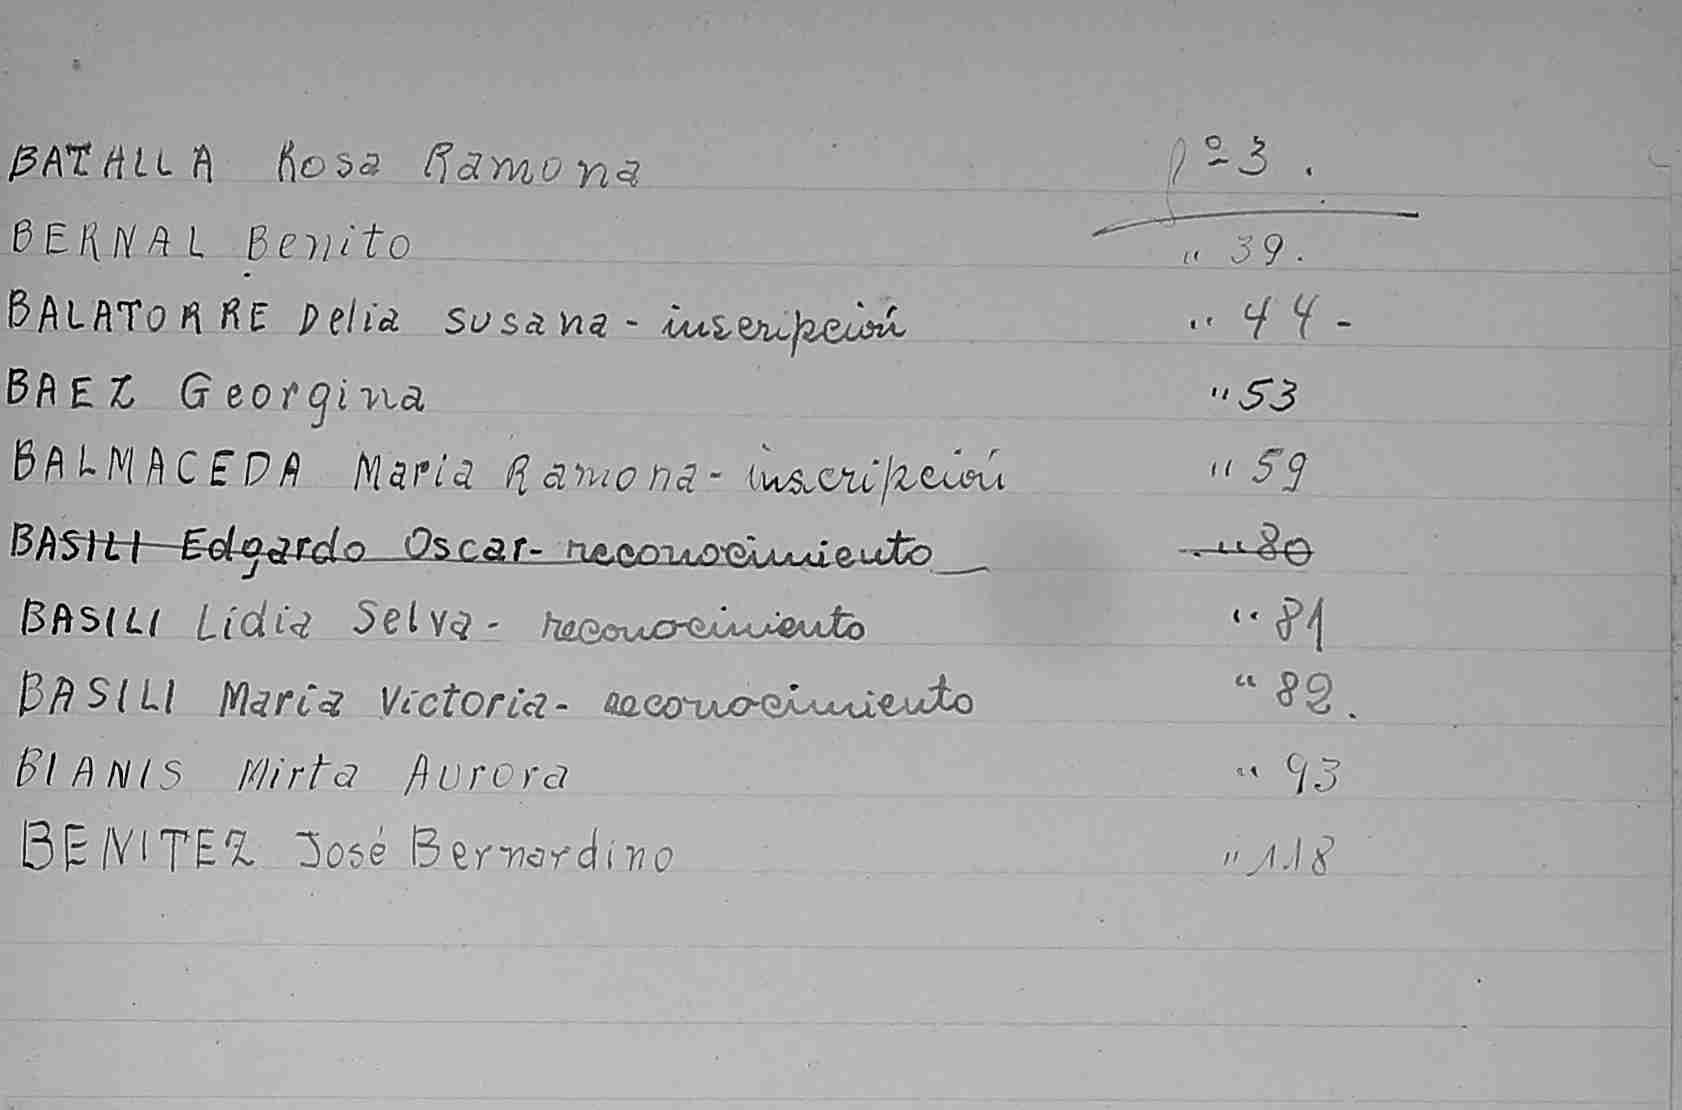 BATALLA Rosa Ramona fº 3.
BERNAL Benito " 39.
BALATORRE Delia Susana - inscripción " 44 -
BAEZ Georgina " 53
BALMACEDA Maria Ramona - inscripción " 59
BASILI Edgardo Oscar - reconocimiento " 80
BASILI Lidia Selva - reconocimiento " 81
BASILI Maria Victoria - reconocimiento " 82.
BIANIS Mirta Aurora " 93
BENITEZ José Bernardino " 118